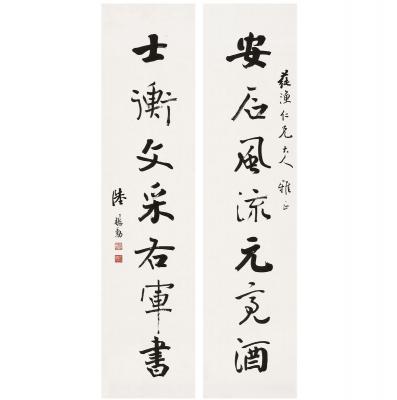 漁仁兄大人 雅正
安石風流元亮酒
士衡文采右軍書
陸